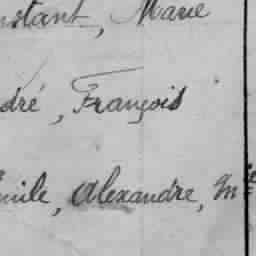 nstant, Marie
dré, François
mile, Alexandre, M